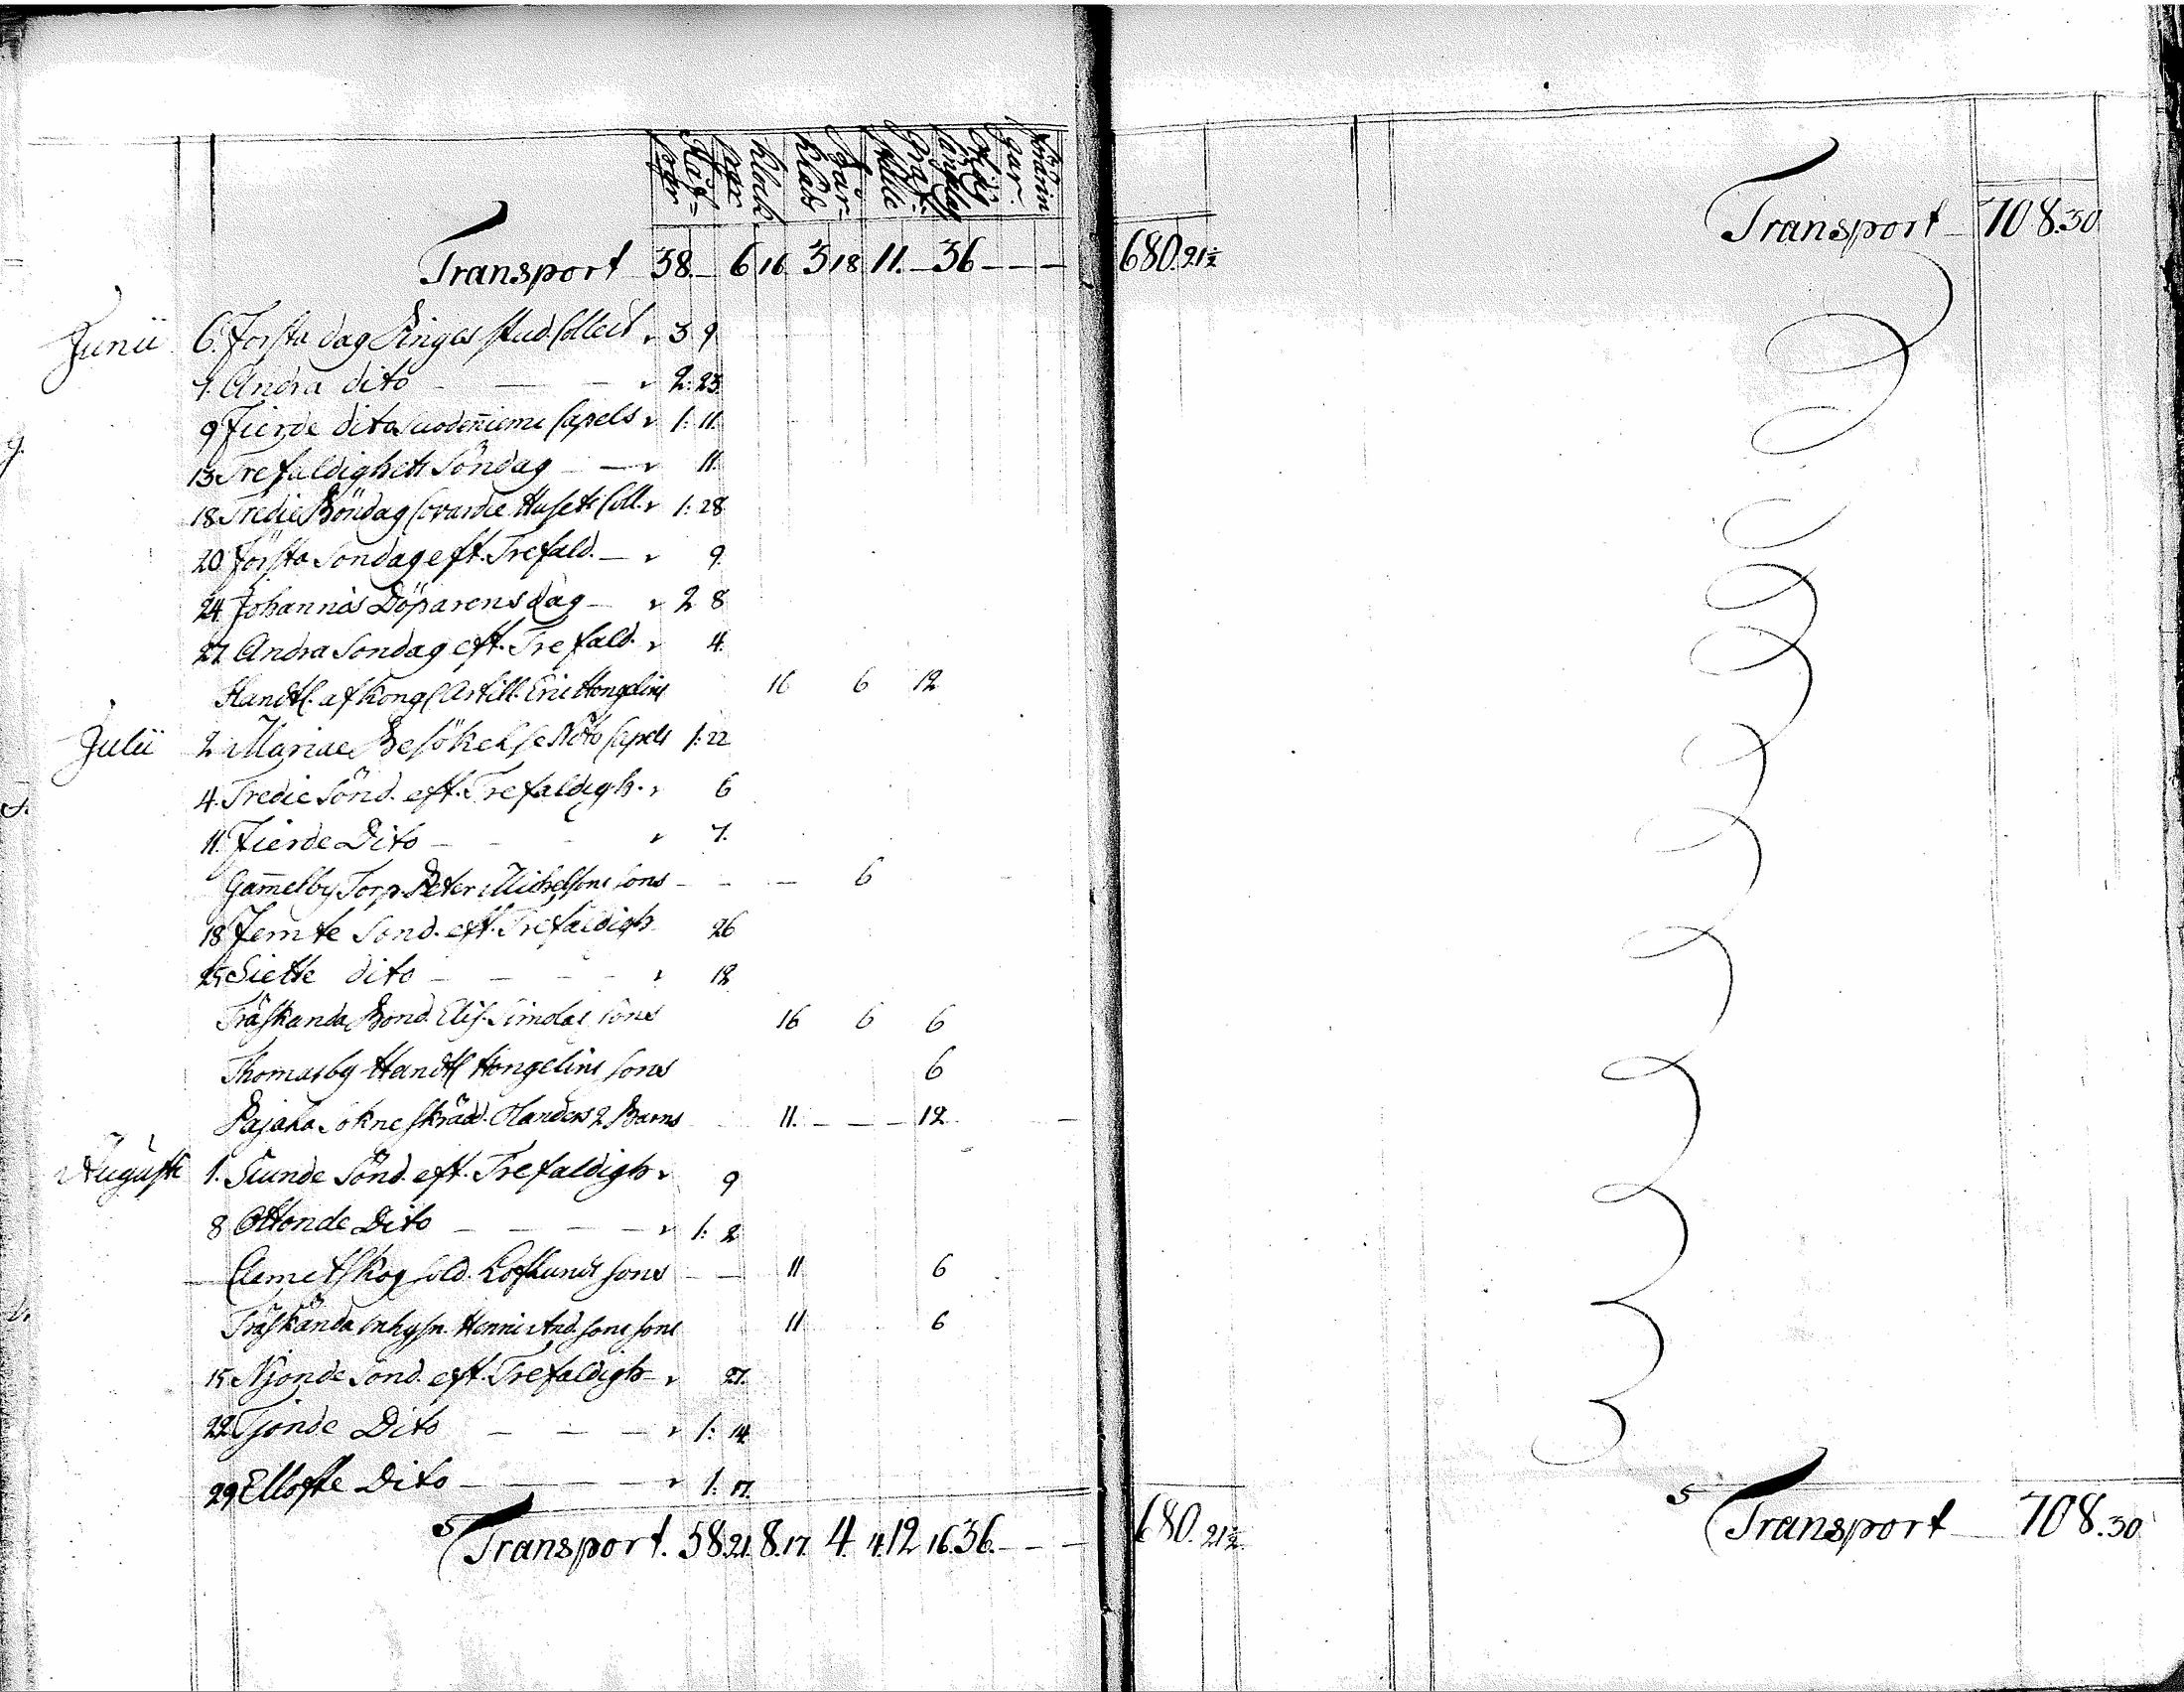 Håf= pgr
Klock pgr
Bår= kläd
Transport 38.— 6 16. 3 18 11.— 36 — — — 680. 21½
Junii 6. Forsta dag Pinges stud. Collect 3 9
7. Andra dito — — — 2: 23.
9 Fierde dito Suodeniemi Capels 1: 11.
13 Trefaldighets Söndag — — 11.
18 Tredie Böndag Huset Coll. 1: 28
20 Första Söndag eft. Trefald. — 9.
24. Johannis Döparens dag — 2 8
27. Andra Sondag eft. Trefald. 4.
Handtl. af Kongl Artill. Eric Hongelius 16 6 12
Julii 2 Mariae Besökelse Nöto Capels 1: 22
4. Tredie Sönd. eft. Trefaldigh. 6
11. Fierde Dito — 7.
Gam̄elby Torp. Peter Michelsons sons — — — 6
18 Femte Sönd. eft. Trefaldigh 26
25 Siette dito — — — — 18
Träskanda Bond. Elis. Simolas sons 16 6 6
Thomasby Handtl Hongelins sons 6
Pajala Sokne Skrädd. Olanders 2 Barns 11. — — — 12 —
Augusti 1. Siunde Sönd. eft. Trefaldigh 9
8 Ottonde Dito — — — — 1: 2
Clemetskog sold. Löflunds sons — — 11 6
Träskända Inhysn. Henric And.sons sons 11 6
15. Njonde Sönd. eft. Trefaldigh 27.
22. Tjonde Dito — — — 1: 14
29 Ellofte Dito — — — — 1: 17.
Transport. 58. 21. 8. 17. 4. 4. 12 16. 36. — — — 680. 21½
Transport — 708. 30
Transport — 708. 30